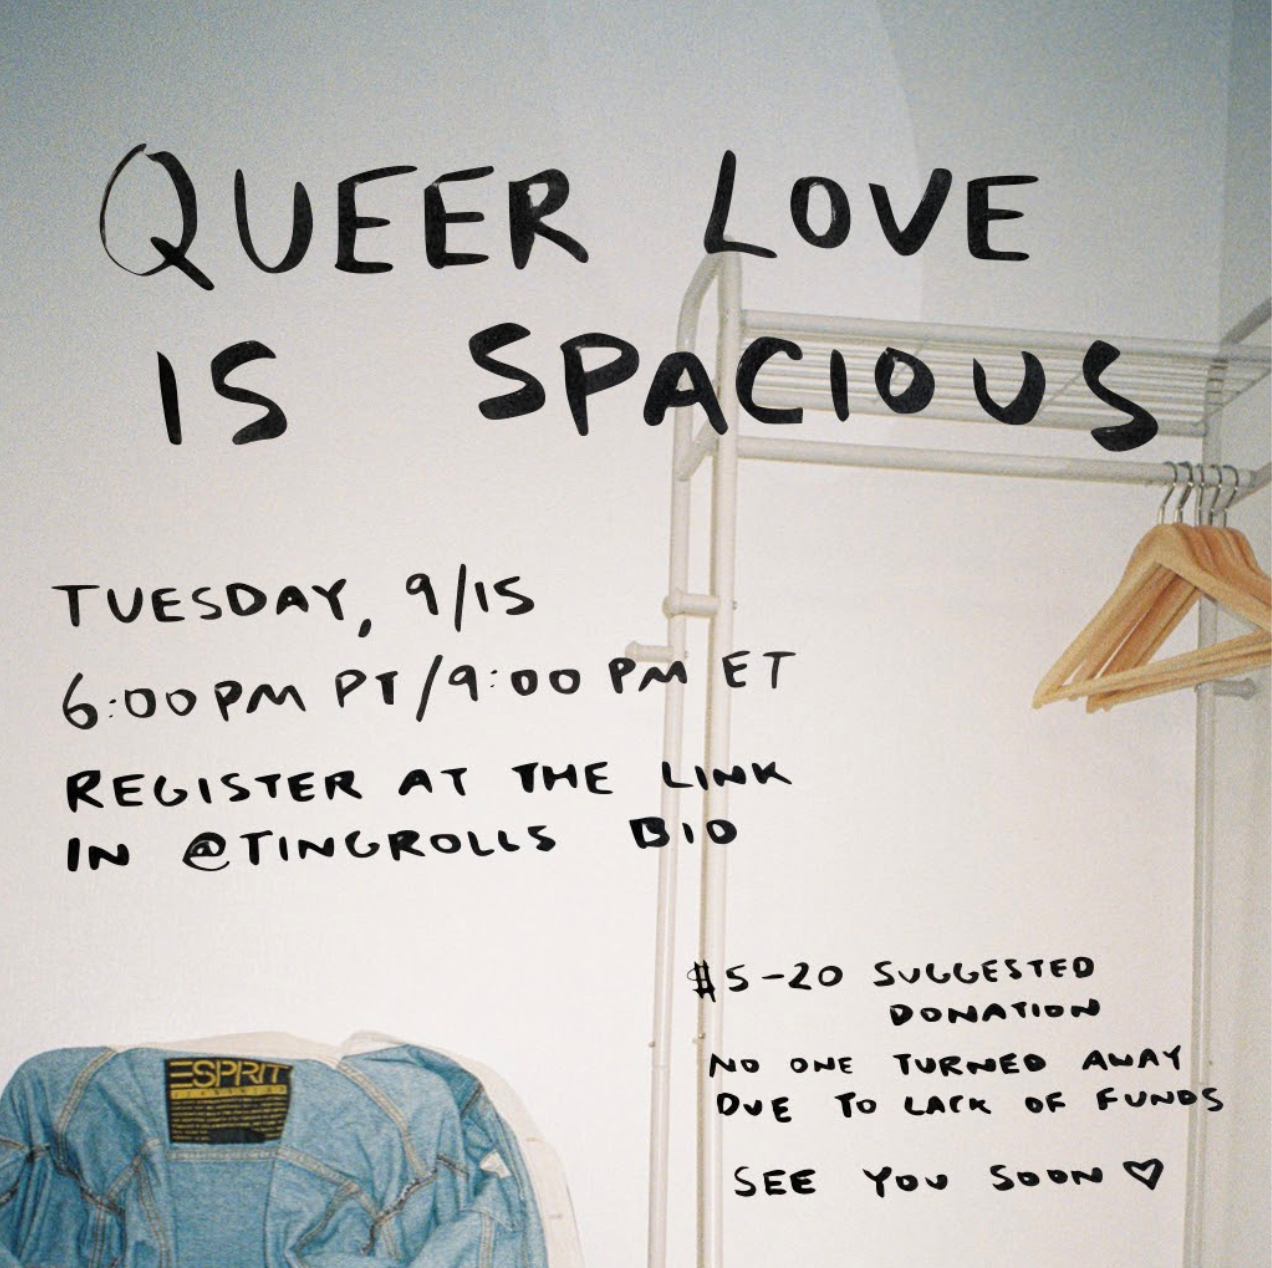 QUEER LOVE
IS SPACIOUS
TUESDAY, 9/15
6:00 PM PT/9:00 PM ET
REGISTER AT THE LINK
IN @TINGROLLS BIO
$5-20 SUGGESTED
DONATION
NO ONE TURNED AWAY
DUE TO LACK OF FUNDS
SEE YOU SOON ♡
ESPRIT